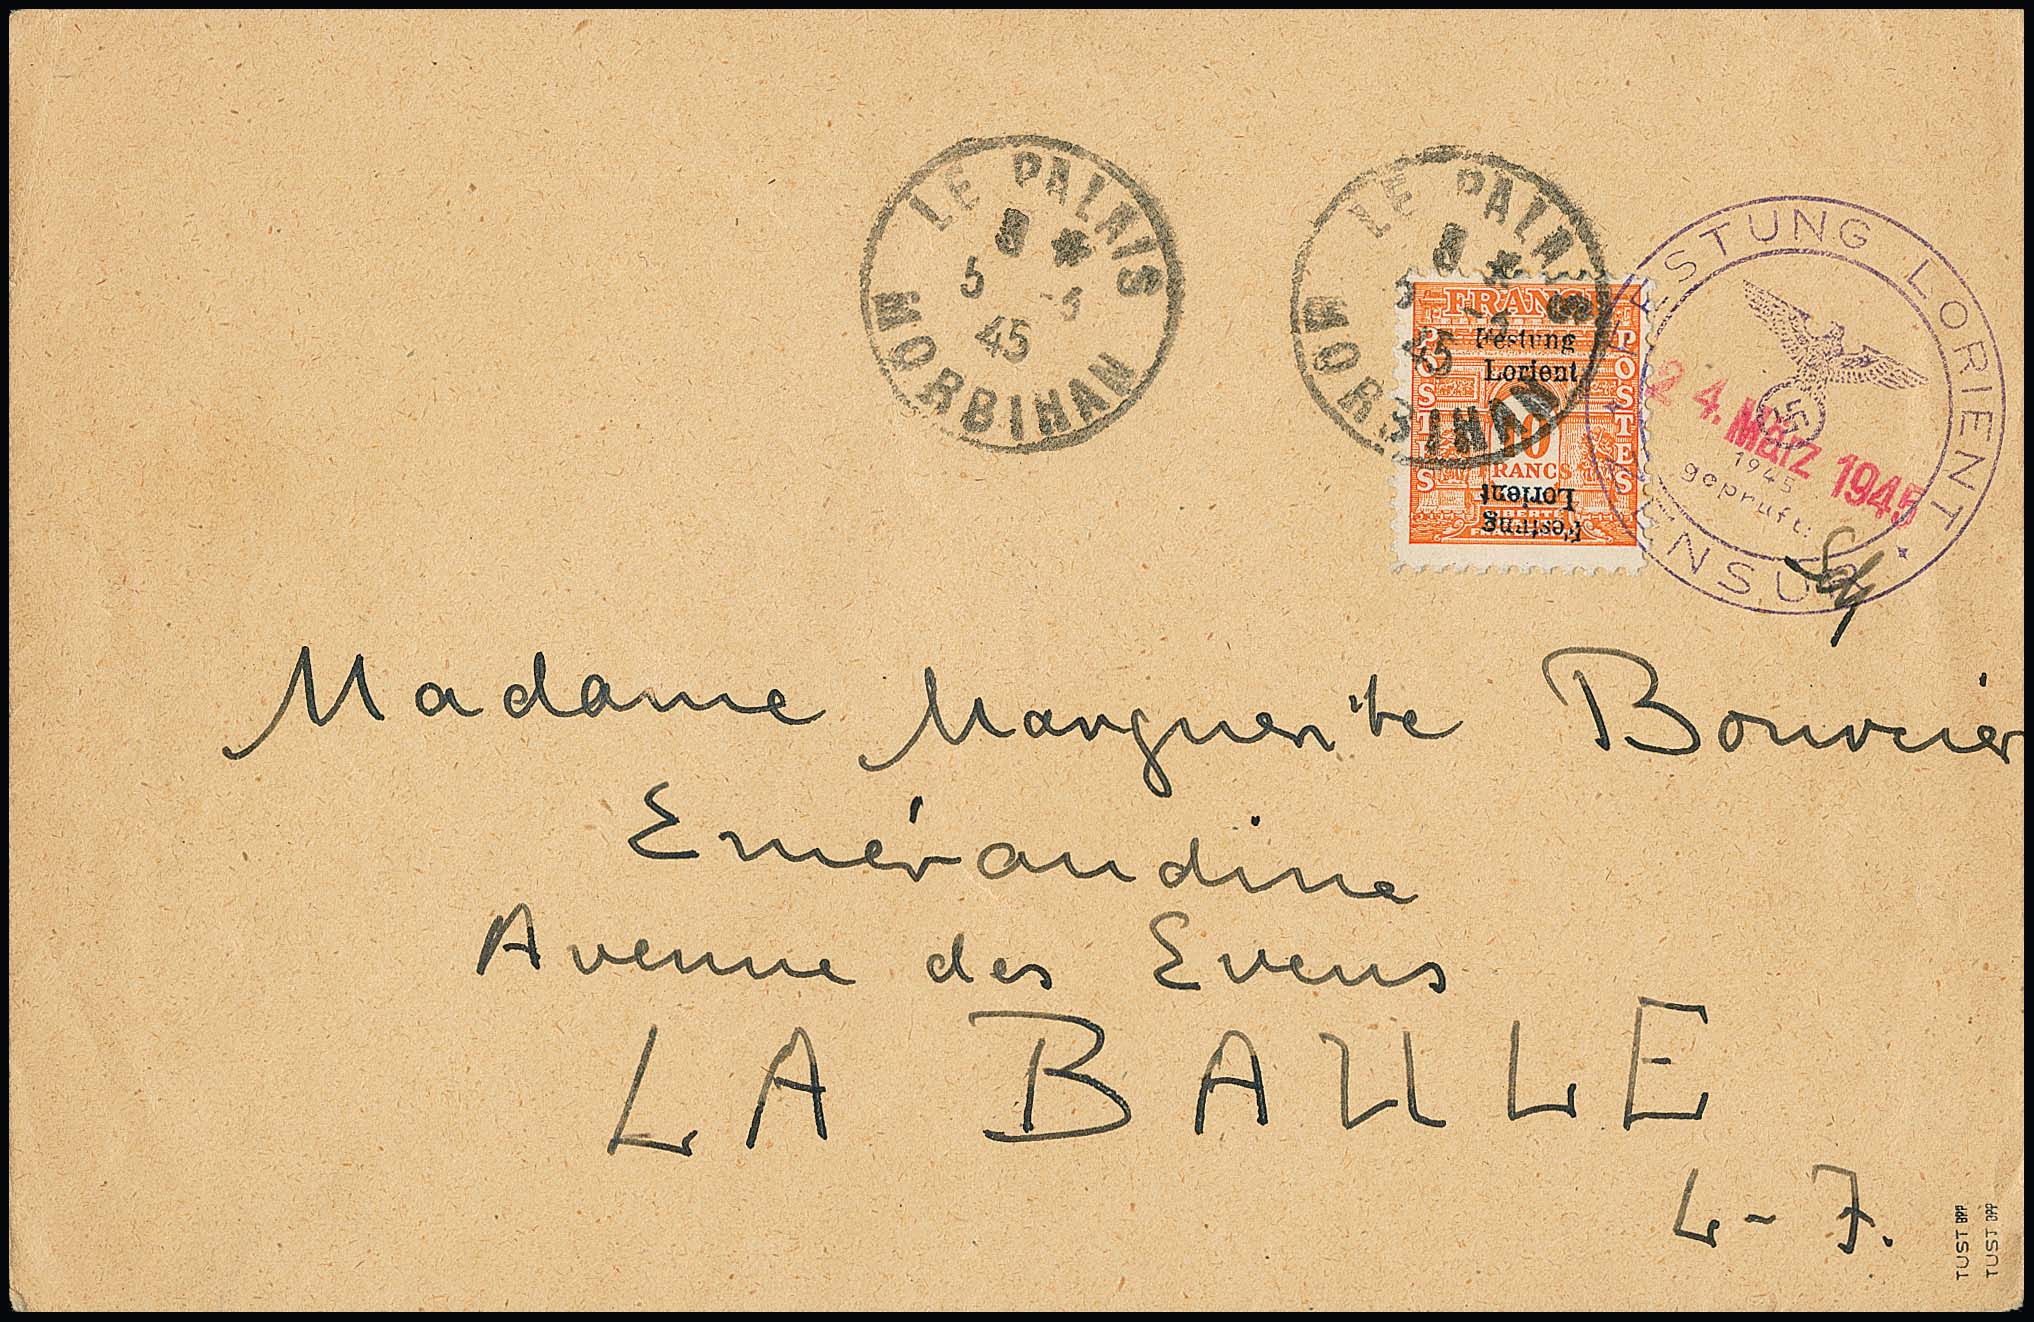 LE PALAIS
5 -3
45
MORBIHAN
LE PALAIS
-3
45
MORBIHAN
FRANCE
POSTES
POSTES
Festung
Lorient
10
FRANCS
Lorient
Festung
LIBERTÉ
FESTUNG LORIENT
ZENSUR
24. März 1945
1945
geprüft:
Madame Marguerite Bouvier
Emérandine
Avenue des Evens
LA BAULE
L-J.
TUST BPP
TUST BPP